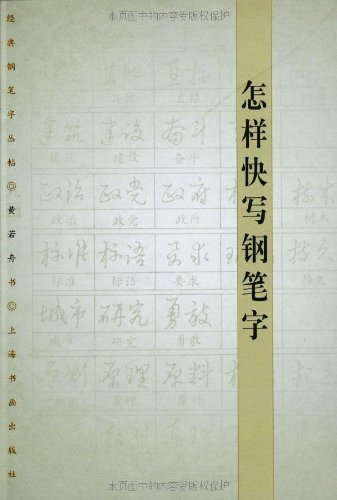 本页面中的内容受版权保护
怎样快写钢笔字
经典钢笔字丛帖◎黄若舟书◎上海书画出版社
建筑 建设 奋斗
建筑 建设 奋斗
政治 政党 政府
政治 政党 政府
标准 标语 要求
标准 标语 要求
城市 研究 勇敢
城市 研究 勇敢
原则 原理 原料
原则 原理 原料
本页面中的内容受版权保护